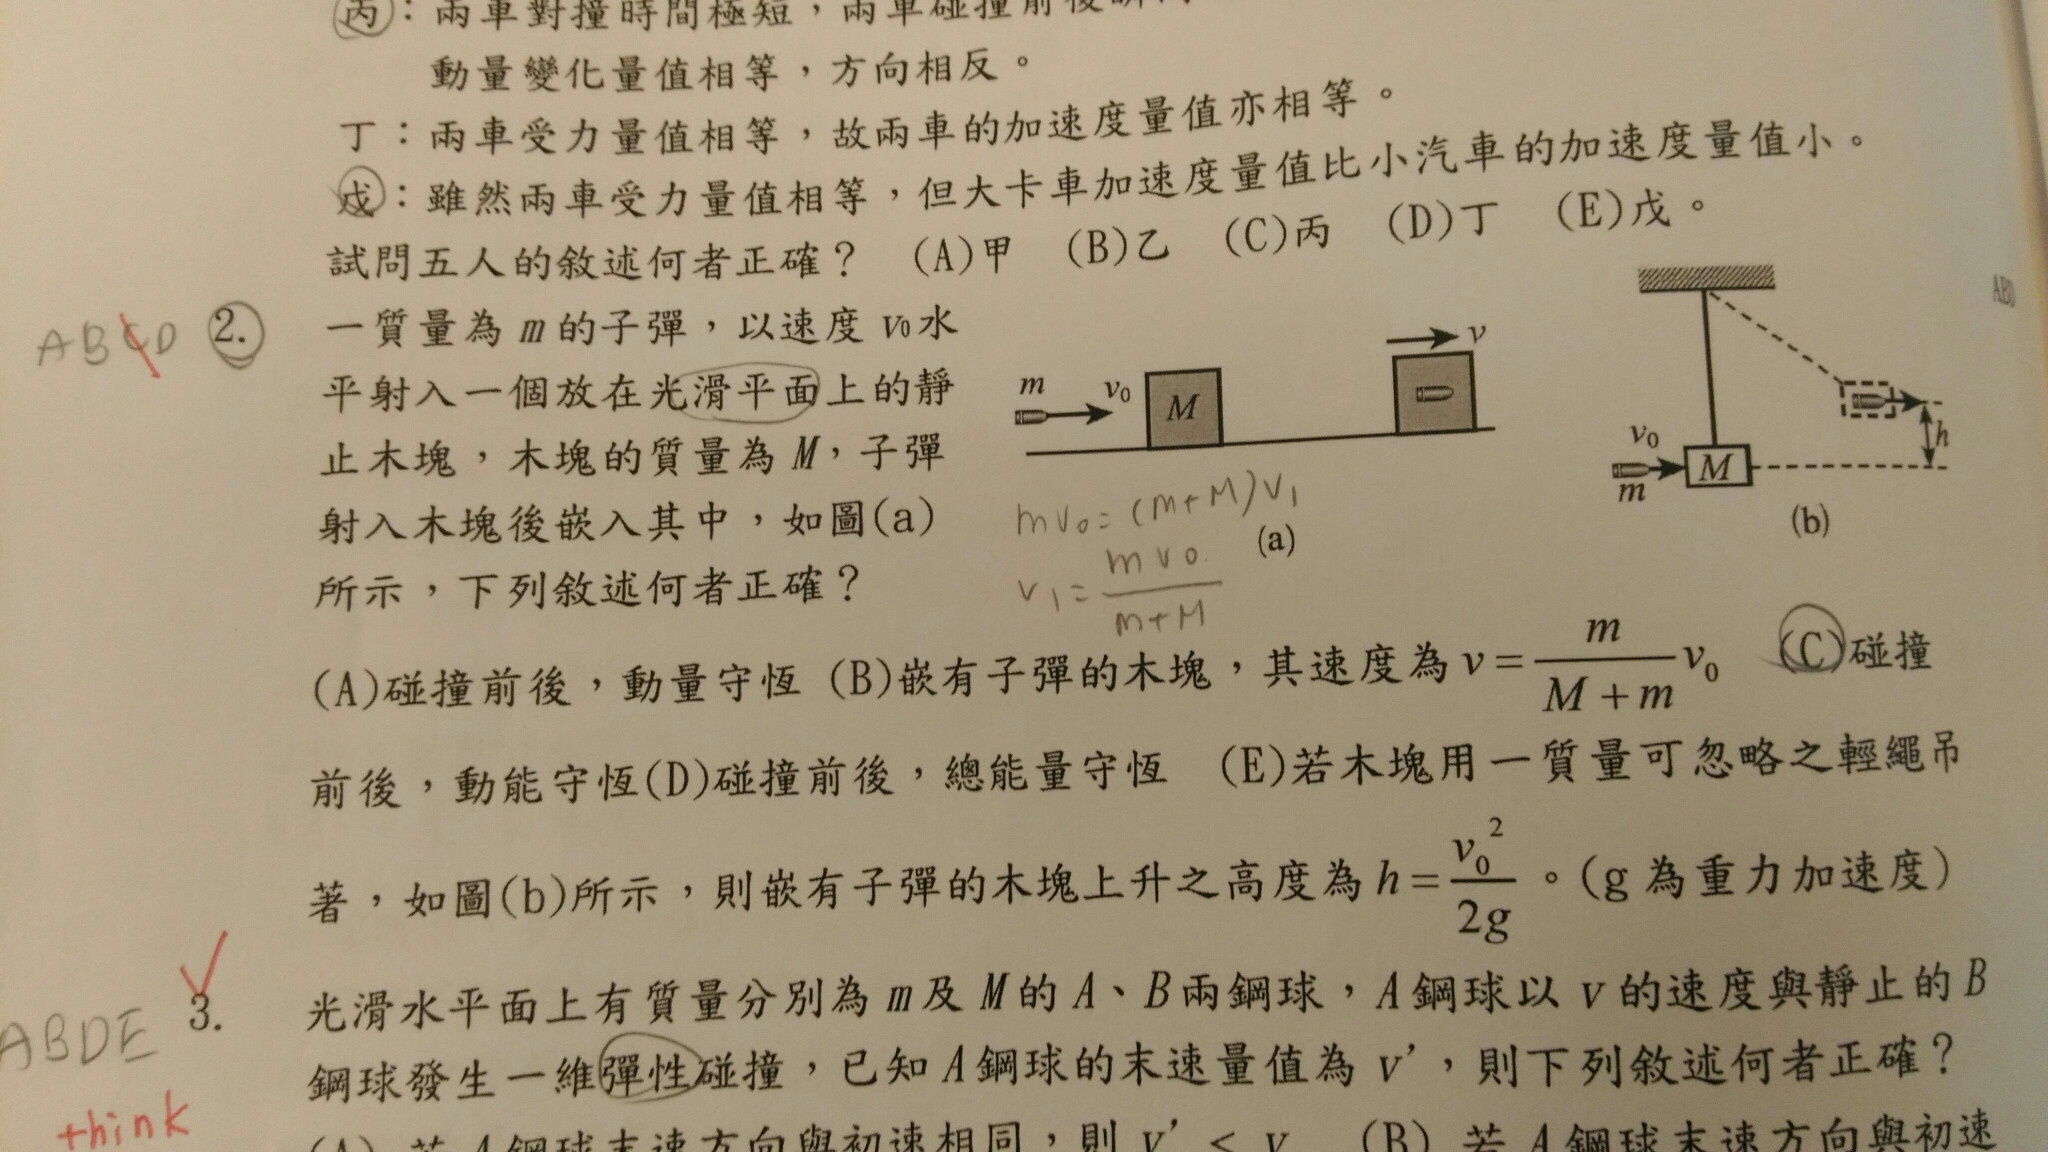 丙：兩車對撞時間極短，兩車碰撞前後
動量變化量值相等，方向相反。
丁：兩車受力量值相等，故兩車的加速度量值亦相等。
戊：雖然兩車受力量值相等，但大卡車加速度量值比小汽車的加速度量值小。
試問五人的敘述何者正確？ (A)甲 (B)乙 (C)丙 (D)丁 (E)戊。
ABCD 2. 一質量為 m 的子彈，以速度 v₀ 水
平射入一個放在光滑平面上的靜
止木塊，木塊的質量為 M，子彈
射入木塊後嵌入其中，如圖(a)
所示，下列敘述何者正確？
m v₀ M v
(a)
mv₀=(m+M)v₁
v₁=mv₀/m+M
v₀ m M h
(b)
ABD
(A)碰撞前後，動量守恆 (B)嵌有子彈的木塊，其速度為 v=m/(M+m) v₀ (C)碰撞
前後，動能守恆(D)碰撞前後，總能量守恆 (E)若木塊用一質量可忽略之輕繩吊
著，如圖(b)所示，則嵌有子彈的木塊上升之高度為 h=v₀²/2g。(g 為重力加速度)
ABDE 3. 光滑水平面上有質量分別為 m 及 M 的 A、B 兩鋼球，A 鋼球以 v 的速度與靜止的 B
鋼球發生一維彈性碰撞，已知 A 鋼球的末速量值為 v'，則下列敘述何者正確？
think
(A) 若 A 鋼球末速方向與初速相同，則 v' < v (B) 若 A 鋼球末速方向與初速